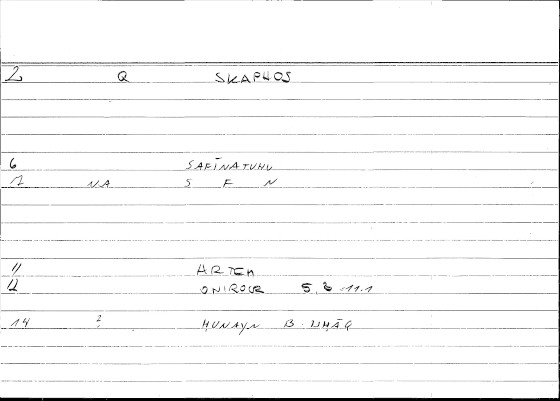 2 Q SKAPHOS
6 SAFĪNATUHU
7 NA S F N
11 ARTEM
12 ONIROCR 5,6 11.1
14 ? ḤUNAYN B. ISḤĀQ